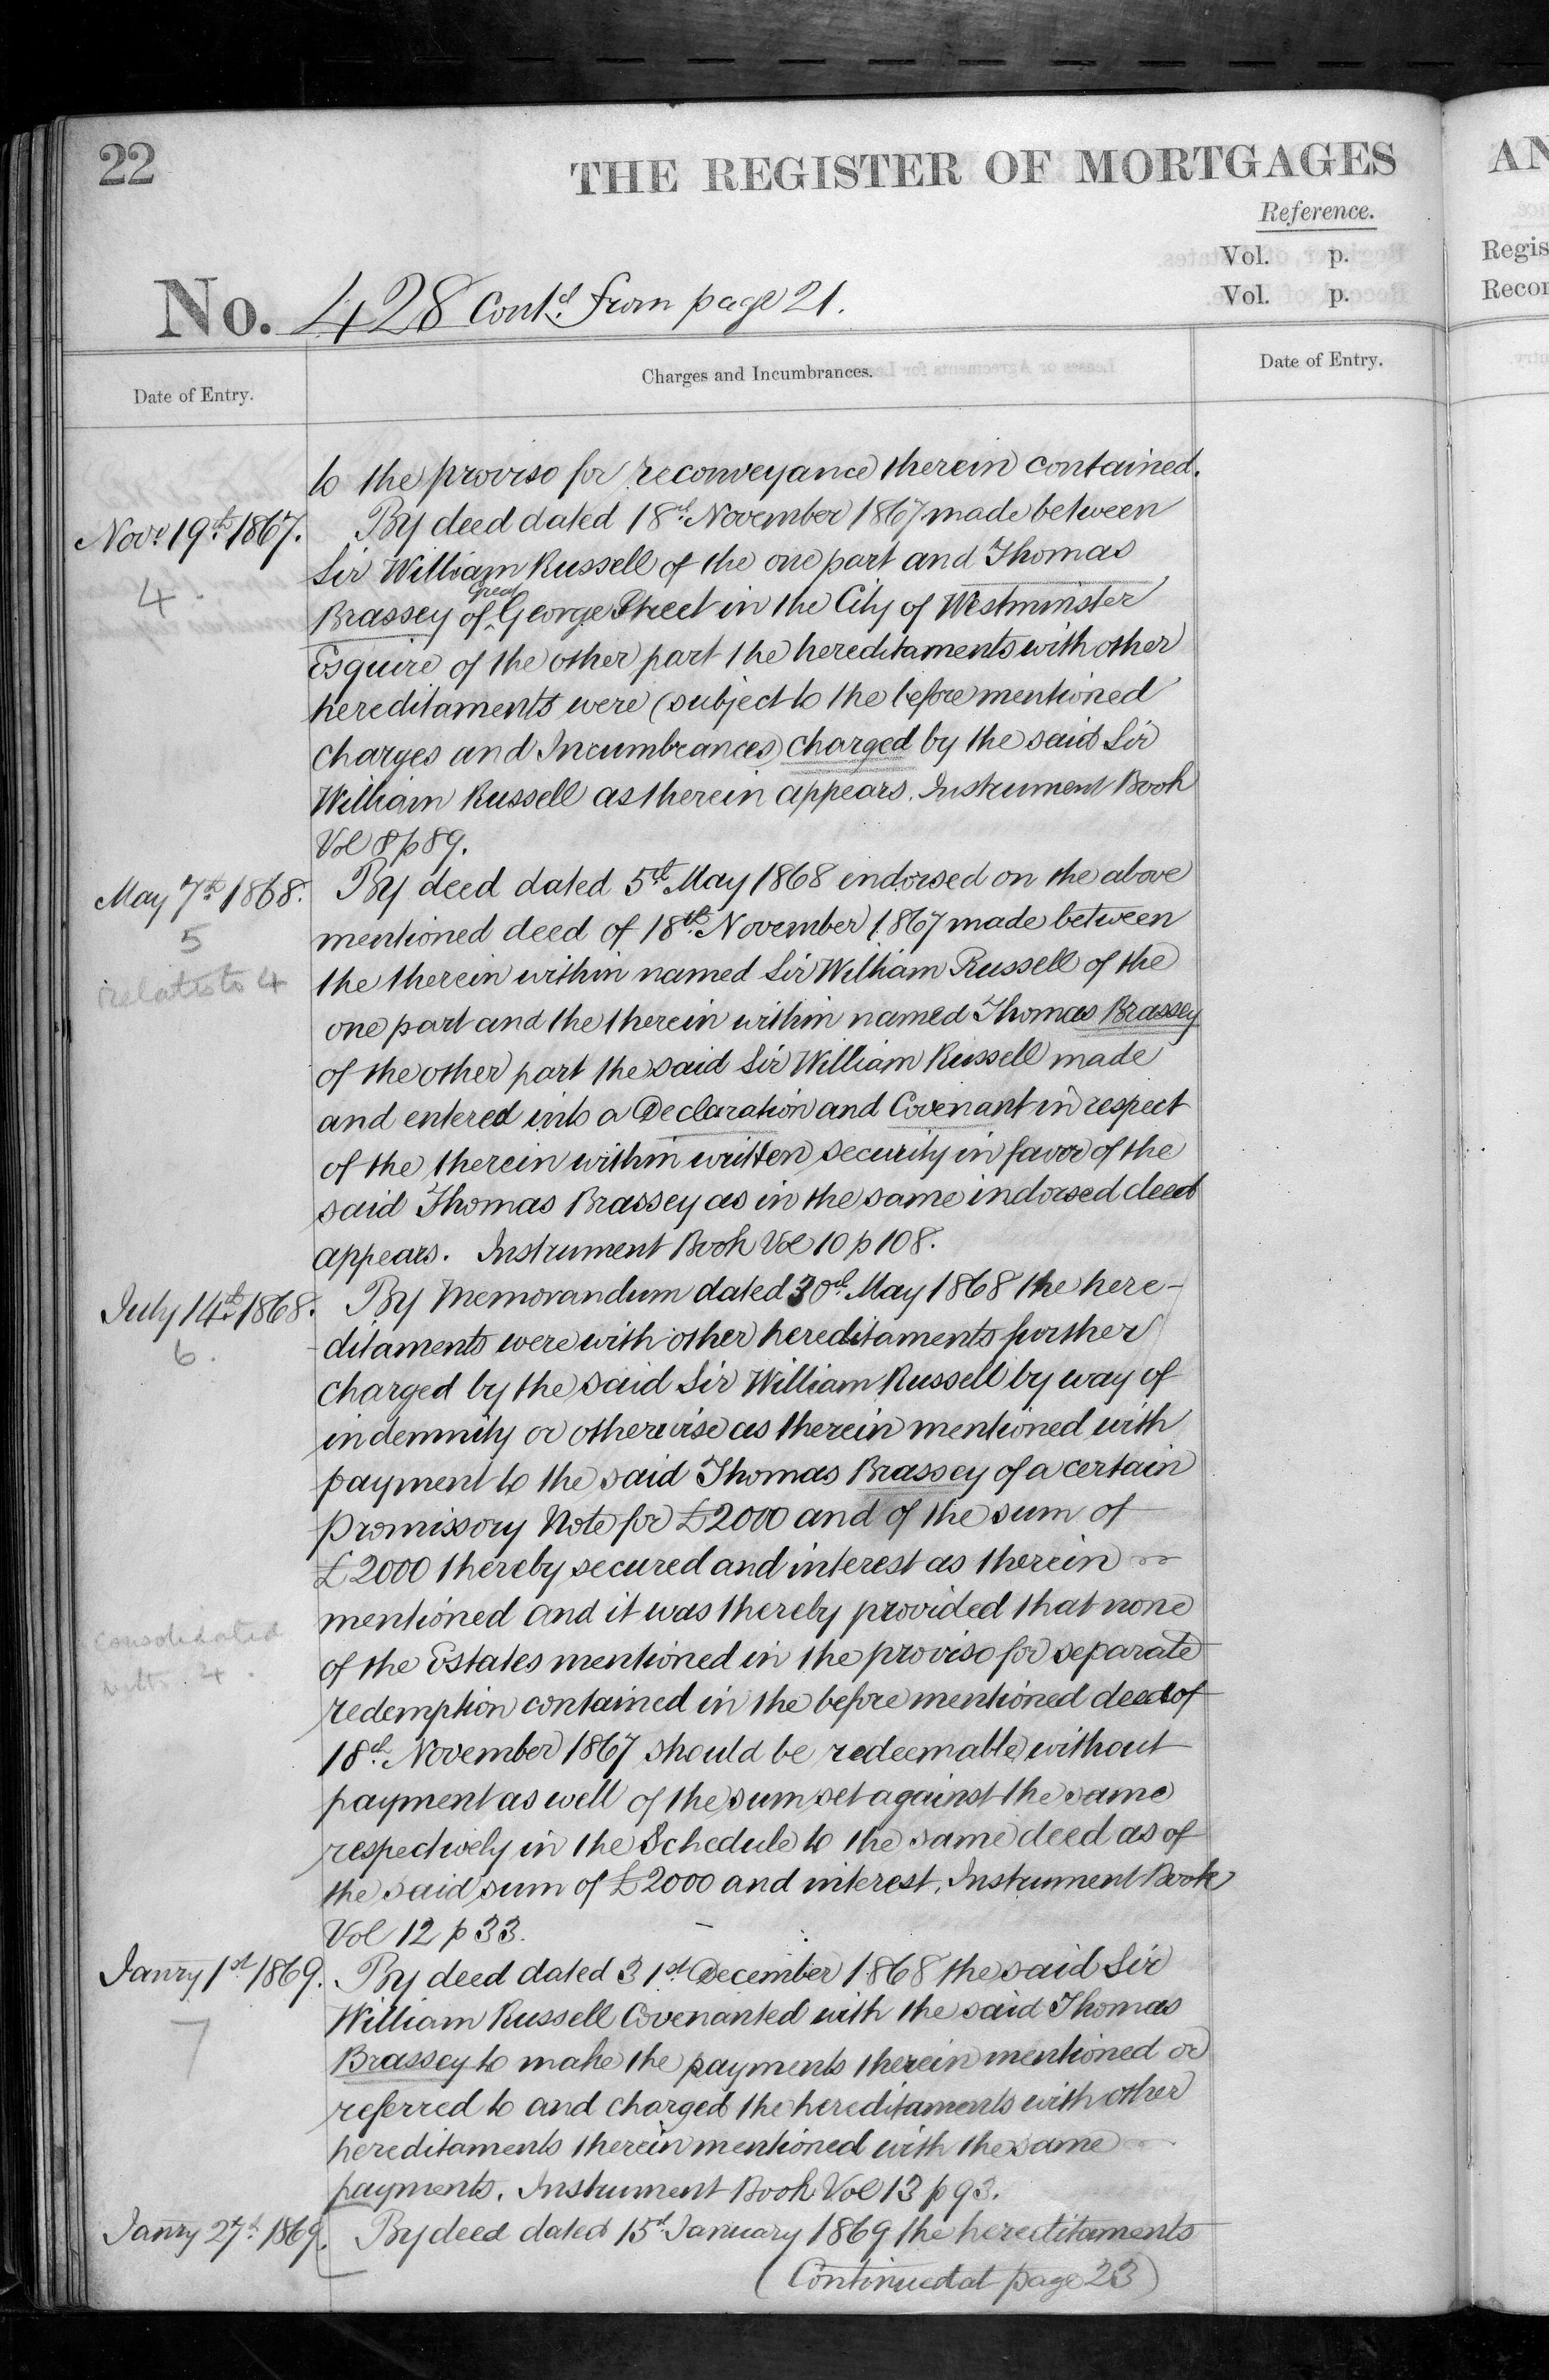 22
THE REGISTER OF MORTGAGES
AN
Reference.
Vol. p.
Regis
Vol. p.
Recor
No. 428 Contd. from page 21.
Date of Entry.
Charges and Incumbrances.
Date of Entry.
to the proviso for reconveyance therein contained.
Novr 19th 1867.
By deed dated 18th November 1867 made between
Sir William Russell of the one part and Thomas
4.
Great
Brassey of George Street in the City of Westminster
Esquire of the other part the hereditaments with other
hereditaments were (subject to the before mentioned
charges and Incumbrances) charged by the said Sir
William Russell as therein appears. Instrument Book
Vol 8 p 89.
May 7th 1868.
By deed dated 5th May 1868 endorsed on the above
5
mentioned deed of 18th November 1867 made between
relates to 4
the therein within named Sir William Russell of the
one part and the therein within named Thomas Brassey
of the other part the said Sir William Russell made
and entered into a Declaration and Covenant in respect
of the therein within written security in favor of the
said Thomas Brassey as in the same indorsed deed
appears. Instrument Book Vol 10 p 108.
July 14th 1868.
By Memorandum dated 30th May 1868 the here-
6.
-ditaments were with other hereditaments further
charged by the said Sir William Russell by way of
indemnity or otherwise as therein mentioned with
payment to the said Thomas Brassey of a certain
Promissory Note for £2000 and of the sum of
£2000 thereby secured and interest as therein
mentioned and it was thereby provided that none
consolidated
with 4.
of the Estates mentioned in the proviso for separate
redemption contained in the before mentioned deed of
18th November 1867 should be redeemable without
payment as well of the sum set against the same
respectively in the Schedule to the same deed as of
the said sum of £2000 and interest. Instrument Book
Vol 12 p 33.
Janry 1st 1869.
By deed dated 31st December 1868 the said Sir
William Russell Covenanted with the said Thomas
7
Brassey to make the payments therein mentioned or
referred to and charged the hereditaments with other
hereditaments therein mentioned with the same
payments. Instrument Book Vol 13 p 93.
Janry 27th 1869.
By deed dated 15th January 1869 the hereditaments
(Continued at page 23)